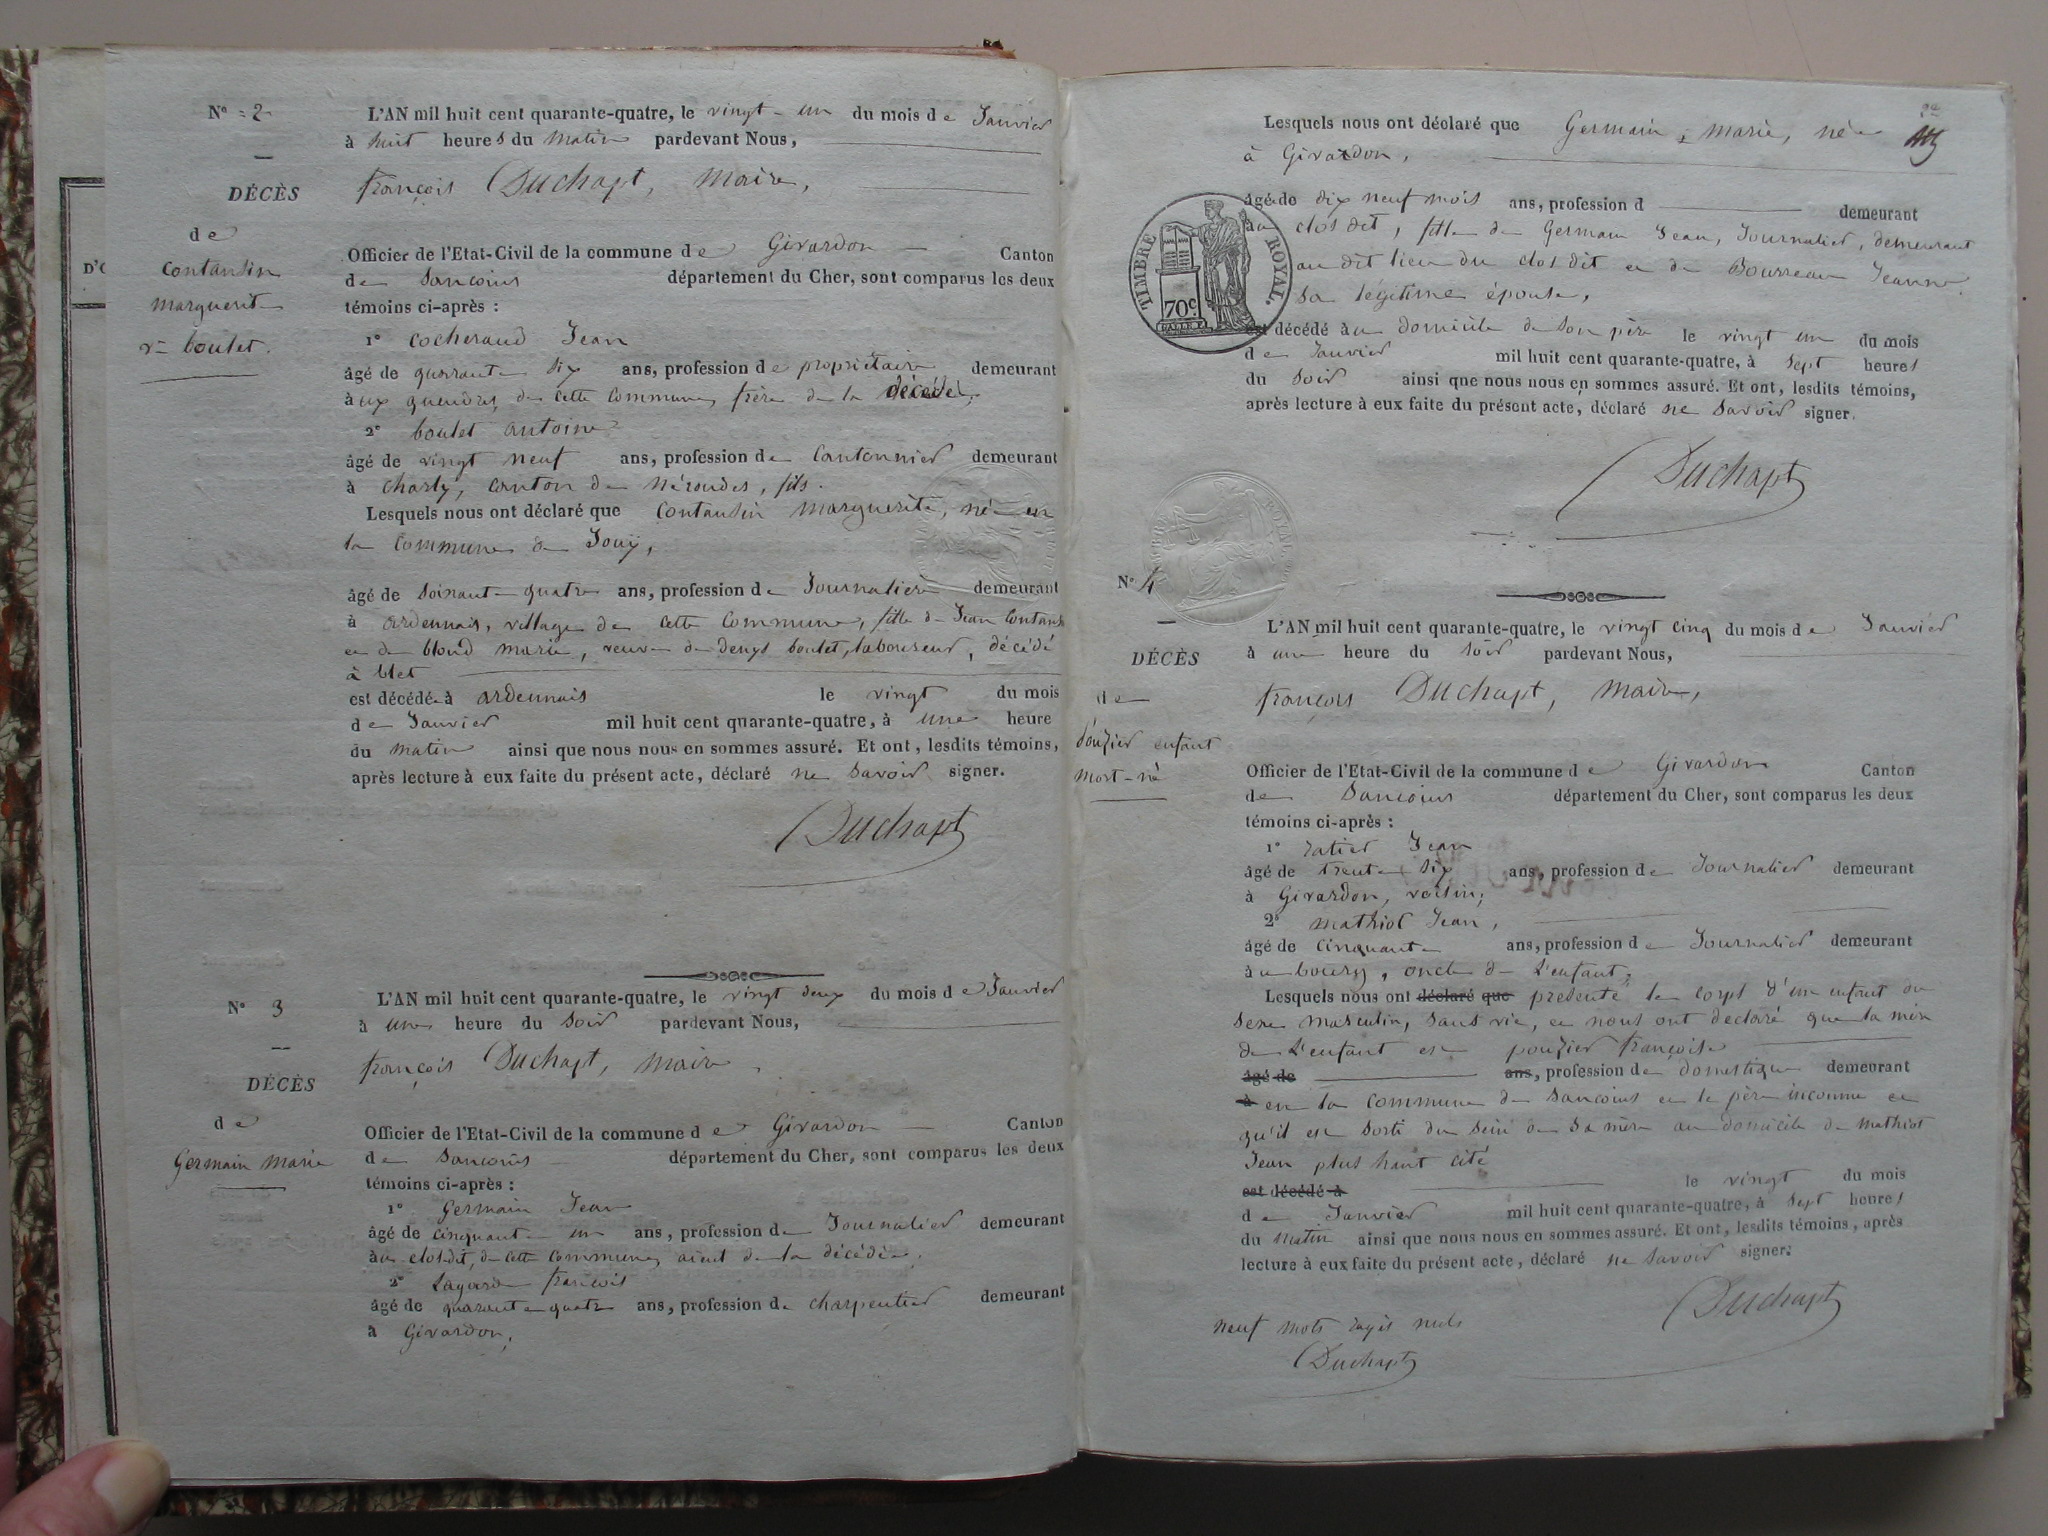 N° 2
L'AN mil huit cent quarante-quatre, le vingt-un du mois de Janvier
à huit heures du matin pardevant Nous,
DÉCÈS
françois Duchapt, maire,
de
Contansin
marguerite
ve boulet.
Officier de l'Etat-Civil de la commune de Givardon Canton
de Sancoins département du Cher, sont comparus les deux
témoins ci-après :
1° Cocheraud Jean
âgé de quarante six ans, profession de propriétaire demeurant
aux de cette commune, frère de la décédée,
2° boulet antoine
âgé de vingt neuf ans, profession de Cantonnier demeurant
à charly, canton de Nérondes, fils.
Lesquels nous ont déclaré que Contansin marguerite, née en
la commune de Jouy,
âgé de soixante quatre ans, profession de Journalière demeurant
à ardennais, village de cette commune, fille de Jean Contansin
et de blond marie, veuve de denys boulet, laboureur, décédé
à blet
est décédé à ardennais le vingt du mois
de Janvier mil huit cent quarante-quatre, à une heure
du matin ainsi que nous nous en sommes assuré. Et ont, lesdits témoins,
après lecture à eux faite du présent acte, déclaré ne savoir signer.
Duchapt
N° 3
L'AN mil huit cent quarante-quatre, le vingt deux du mois de Janvier
à une heure du soir pardevant Nous,
DÉCÈS
françois Duchapt, maire,
de
Germain Marie
Officier de l'Etat-Civil de la commune de Givardon Canton
de Sancoins département du Cher, sont comparus les deux
témoins ci-après :
1° Germain Jean
âgé de cinquante un ans, profession de Journalier demeurant
au clos dit, de cette commune, aieul de la décédée,
2° Lagarde françois
âgé de quarante quatre ans, profession de charpentier demeurant
à Givardon,
Lesquels nous ont déclaré que Germain, marie, née
à Givardon,
âgé de dix neuf mois ans, profession d demeurant
au clos dit, fille de Germain Jean, Journalier, demeurant
au dit lieu du clos dit et de Bourreau Jeanne
sa légitime épouse,
TIMBRE ROYAL.
70c
est décédé au domicile de son père le vingt un du mois
de Janvier mil huit cent quarante-quatre, à sept heures
du soir ainsi que nous nous en sommes assuré. Et ont, lesdits témoins,
après lecture à eux faite du présent acte, déclaré ne savoir signer.
Duchapt
N° 4
L'AN mil huit cent quarante-quatre, le vingt cinq du mois de Janvier
à une heure du soir pardevant Nous,
DÉCÈS
françois Duchapt, maire,
de
pouzier enfant
mort-né
Officier de l'Etat-Civil de la commune de Givardon Canton
de Sancoins département du Cher, sont comparus les deux
témoins ci-après :
1° ratier Jean
âgé de trente six ans, profession de Journalier demeurant
à Givardon, voisin,
2° mathiot Jean,
âgé de cinquante ans, profession de Journalier demeurant
au bourg, oncle de l'enfant,
Lesquels nous ont déclaré que présenté le corps d'un enfant du
sexe masculin, sans vie, et nous ont déclaré que la mère
de l'enfant est pouzier françoise
âgé de ans, profession de domestique demeurant
à en la commune de Sancoins et le père inconnu et
qu'il est sorti du sein de sa mère au domicile de mathiot
Jean plus haut cité
est décédé à le vingt du mois
de Janvier mil huit cent quarante-quatre, à sept heures
du matin ainsi que nous nous en sommes assuré. Et ont, lesdits témoins, après
lecture à eux faite du présent acte, déclaré ne savoir signer.
Duchapt
neuf mots rayés nuls
Duchapt